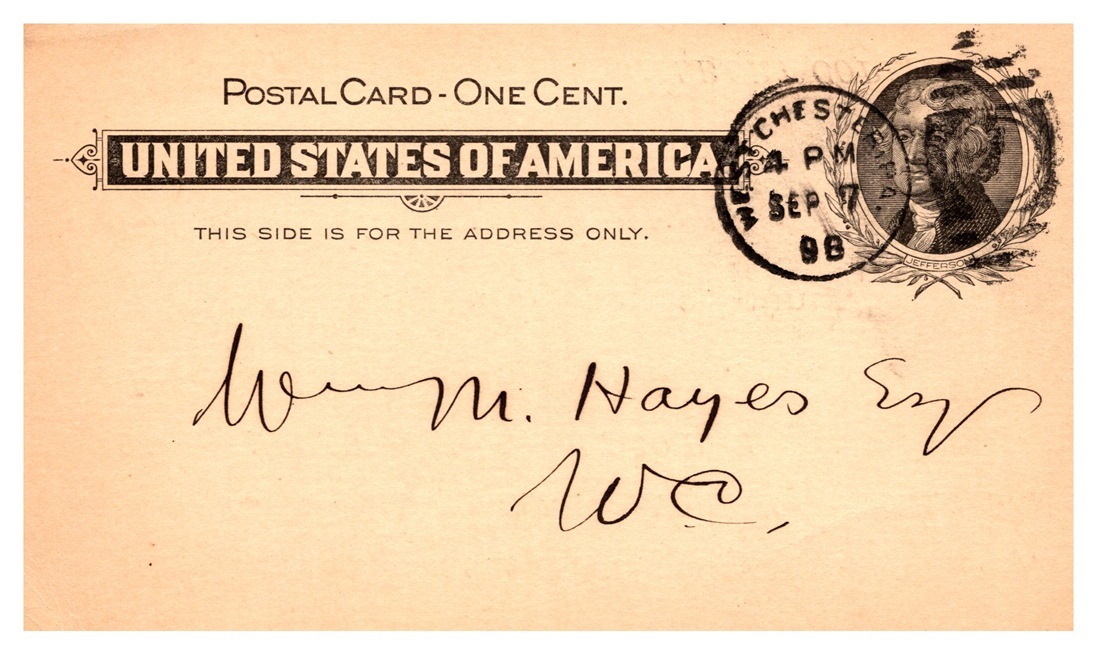 POSTAL CARD - ONE CENT.
UNITED STATES OF AMERICA
THIS SIDE IS FOR THE ADDRESS ONLY.
WEST CHESTER, PA.
4 PM
SEP 7
98
JEFFERSON
Wm M. Hayes Esq
W.C.